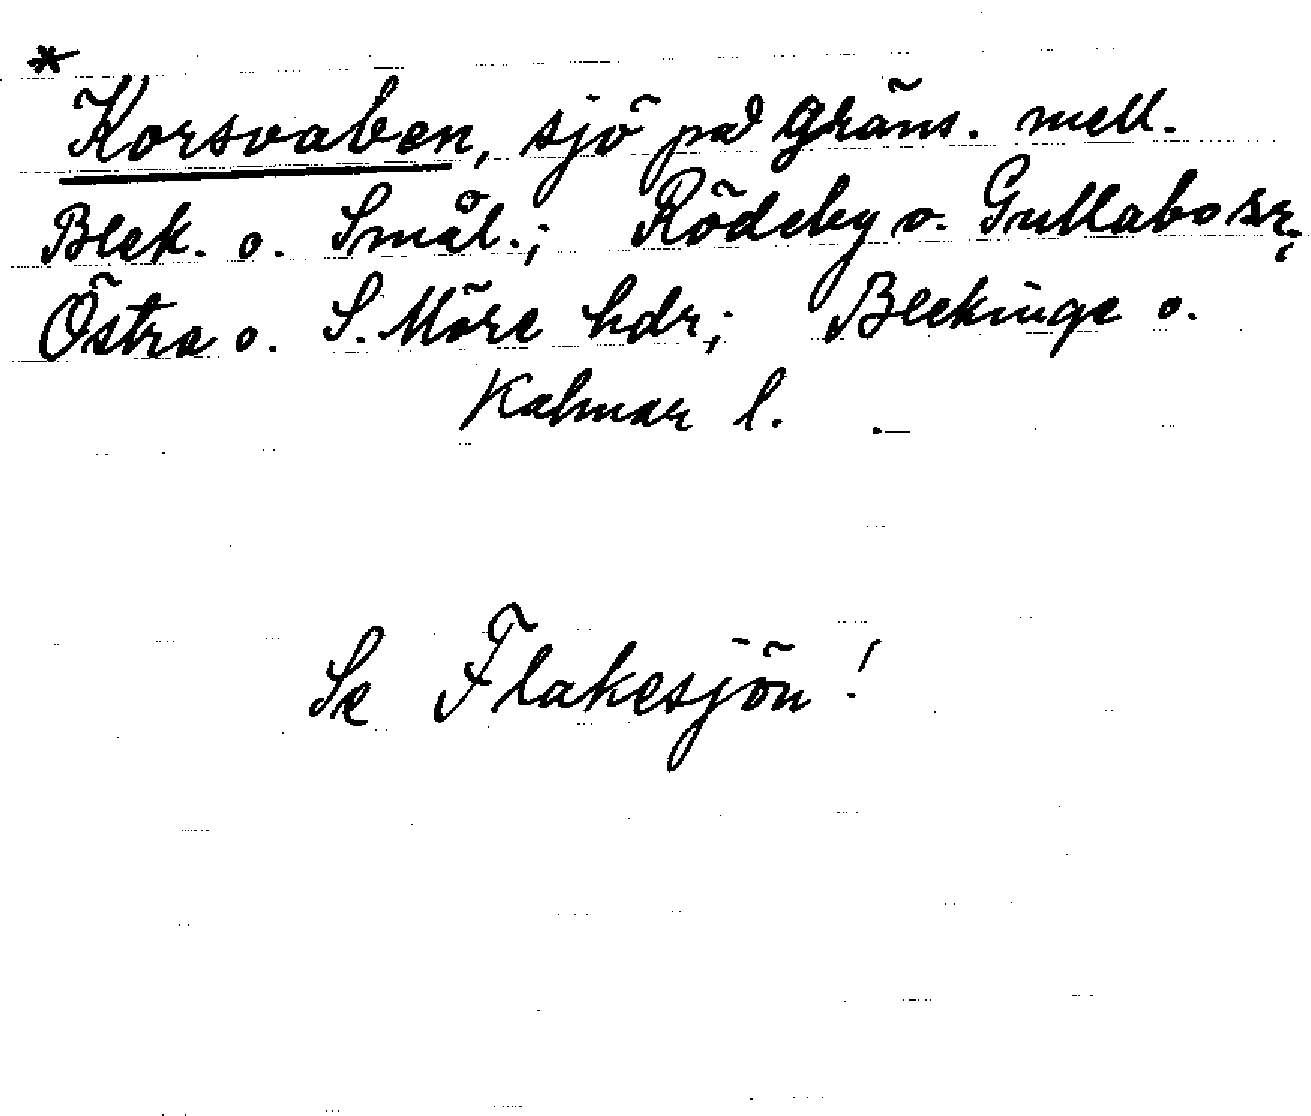 *
Korsvaben, sjö på gräns. mell.
Blek. o. Smål.; Rödeby o. Gullabo snr;
Östra o. S. Möre hdr; Blekinge o.
Kalmar l. .—
Se Flakesjön!